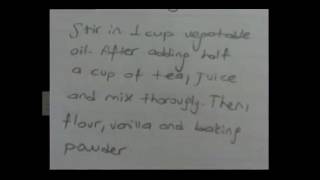 Stir in 1 cup vegetable
oil. After adding half
a cup of tea, juice
and mix thorougly. Then,
flour, vanilla and baking
powder